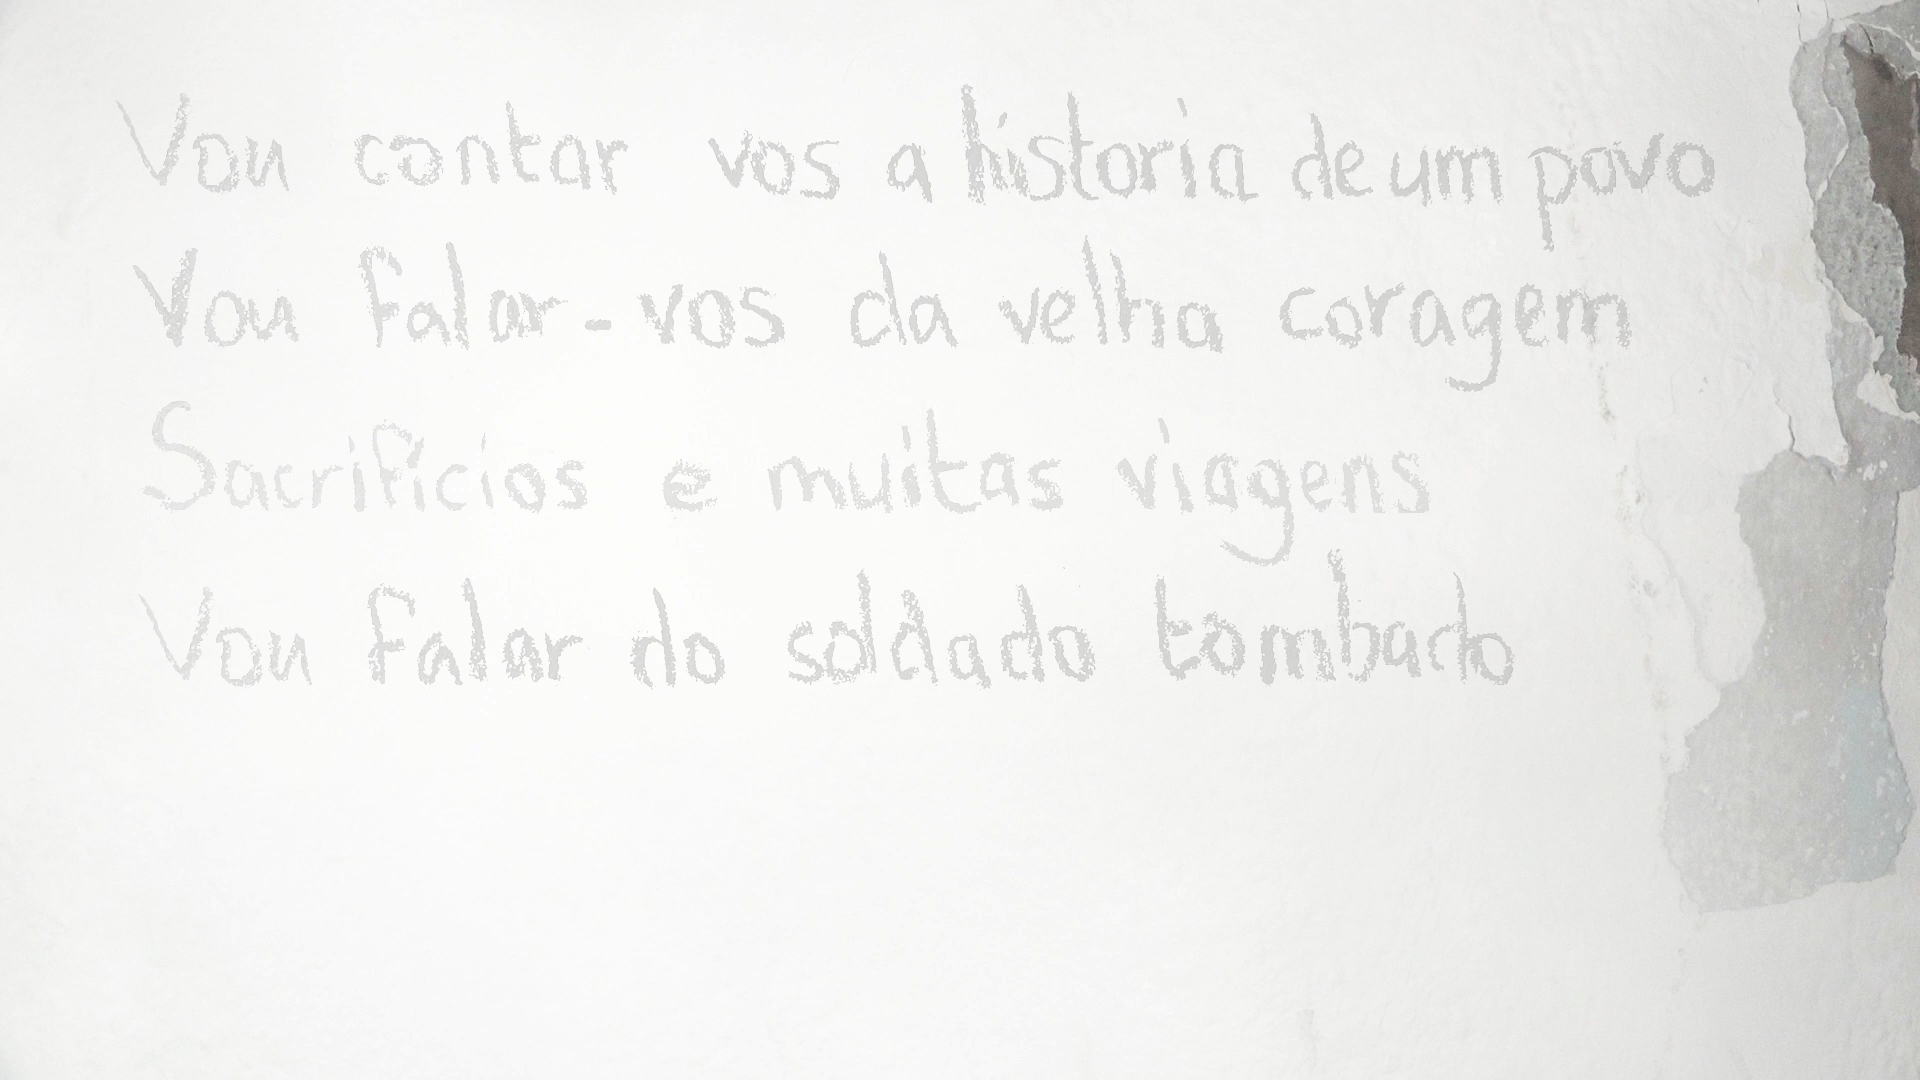 Vou contar vos a historia de um povo
Vou falar-vos da velha coragem
Sacrificios e muitas viagens
Vou falar do soldado tombado